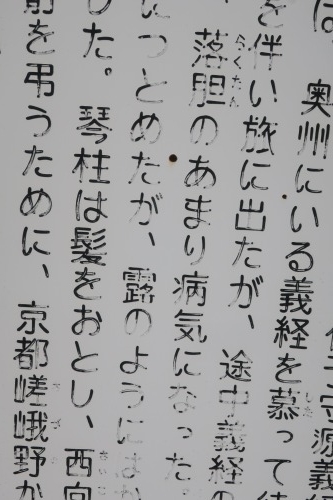 は　奥州にいる義経を慕って
を伴い旅に出たが、途中義経の
落胆のあまり病気になった
らくたん
につとめたが、露のようには
した。琴柱は髪をおとし、西向
前を弔うために、京都嵯峨野か